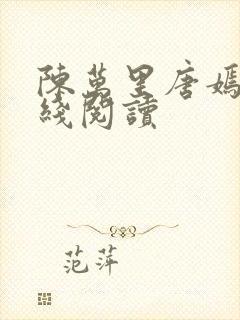 陳萬里唐嫣
綫閱讀
范萍